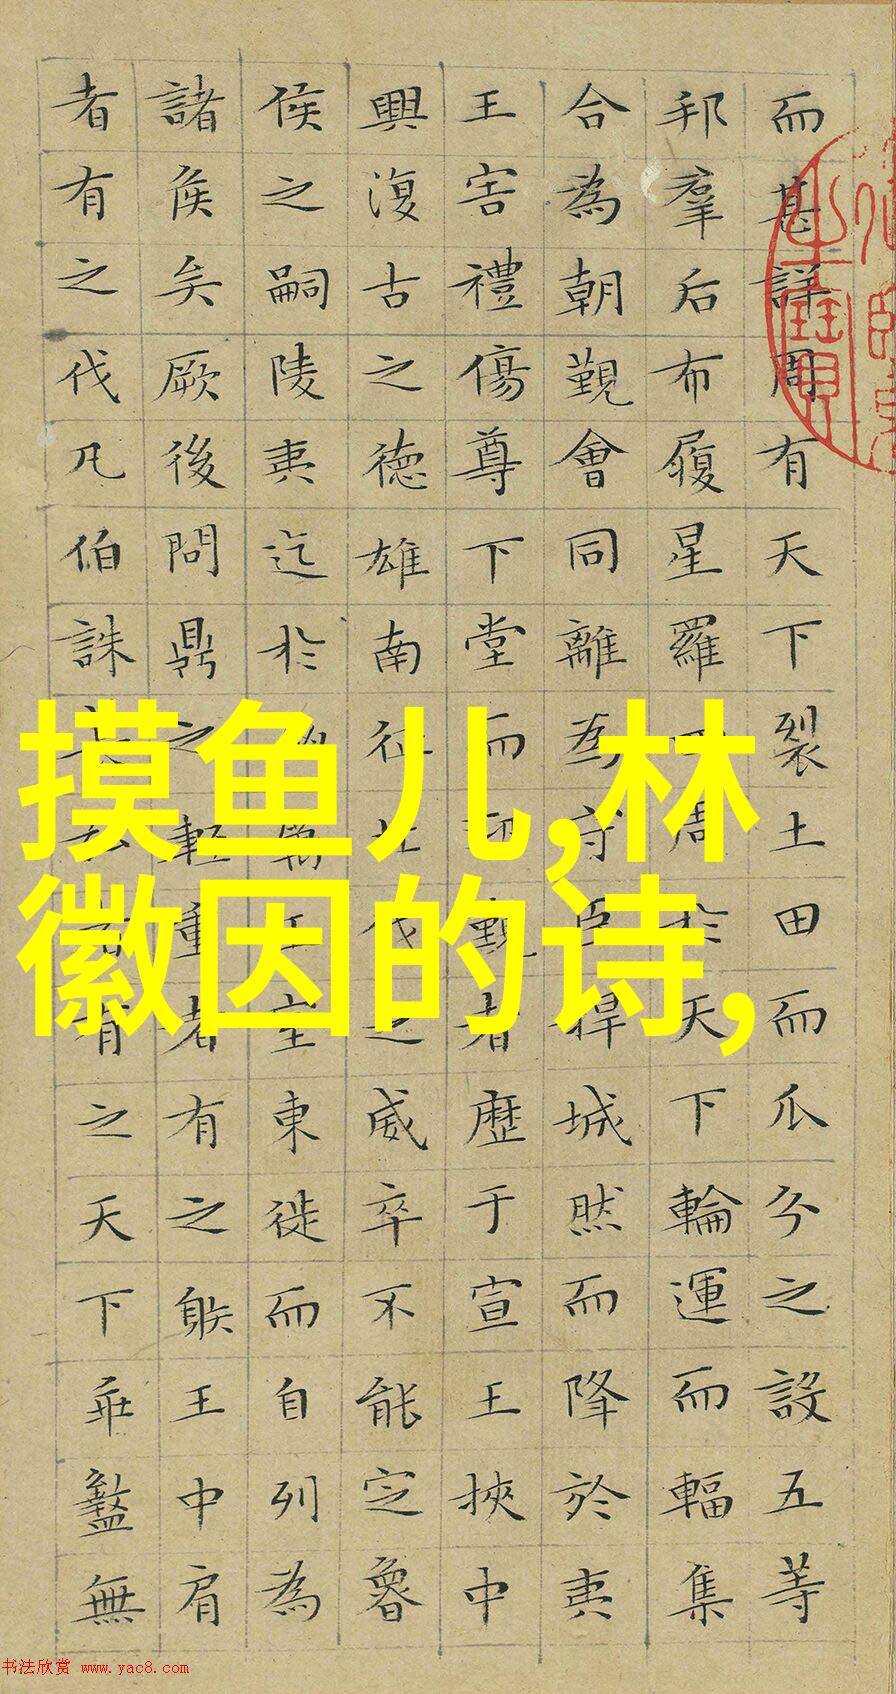 而甚詳周有天下裂土田而瓜分之設五等
邦羣后布履星羅周於天下輪運而輻集
合為朝覲會同離為守臣捍城然而降於夷
王害禮傷尊下堂而覲者歷于宣王挾中
興復古之德雄南征北伐之威卒不能定魯
侯之嗣陵夷迄於厲王室東徙而自列為
諸侯矣厥後問鼎之輕重者有之躲王中肩
者有之伐凡伯誅有之天下乖盭無
摸鱼儿,林
徽因的诗,
书法欣赏 www.yac8.com